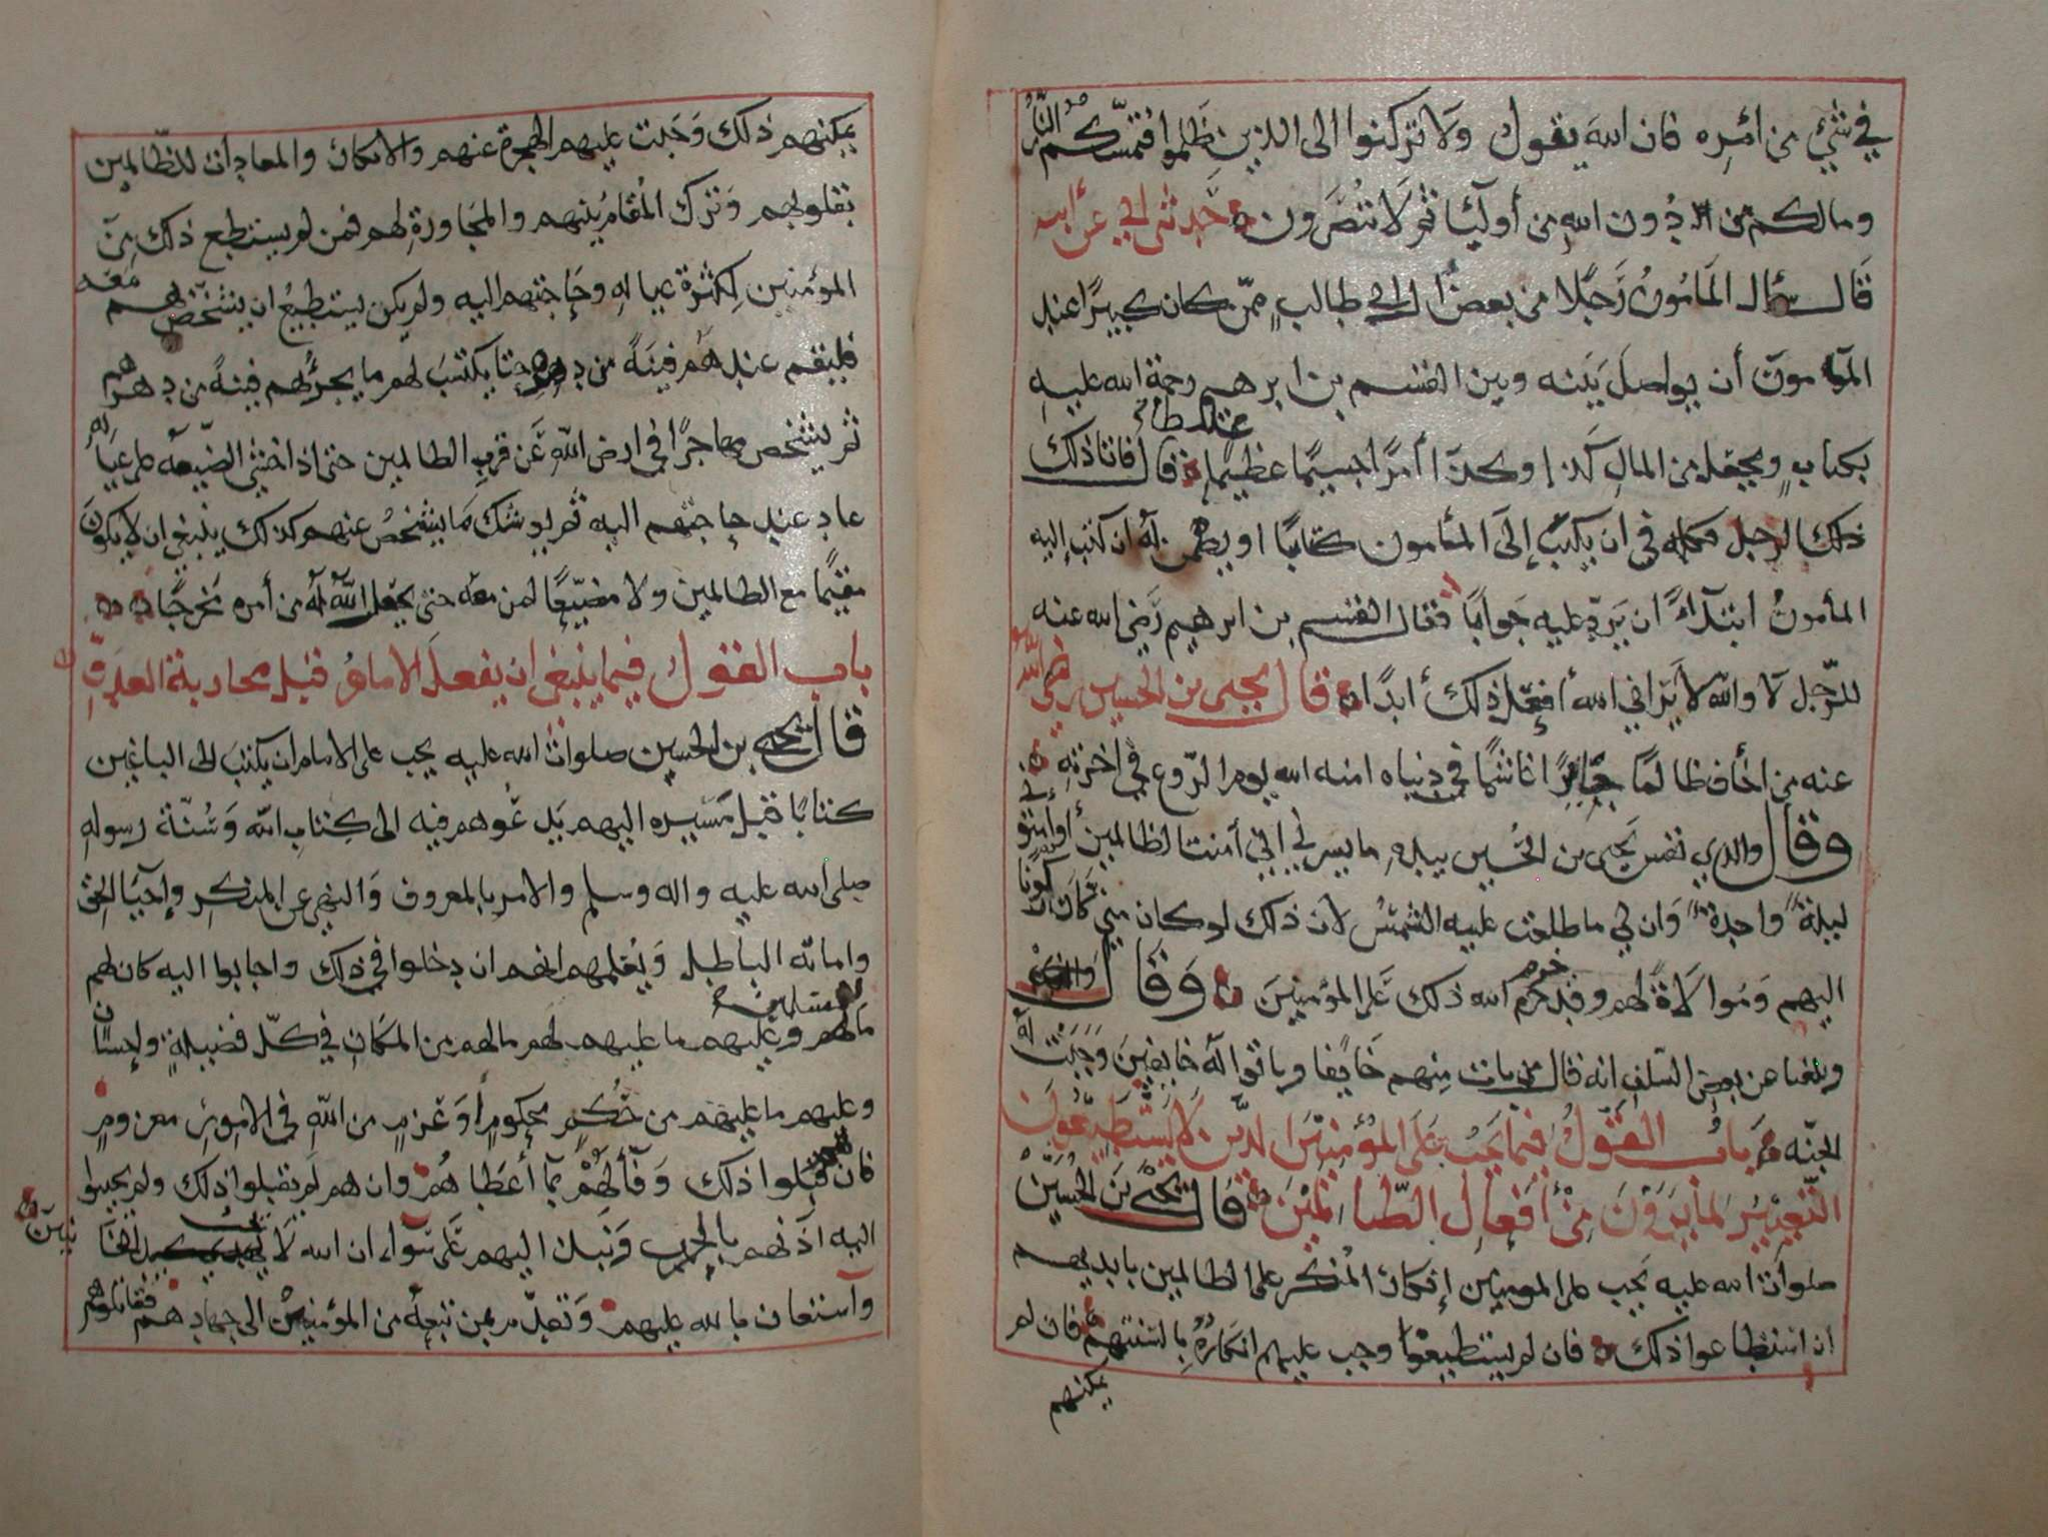 في شيء من أمره فان الله يقول ولا تركنوا الى الذين ظلموا فتمسكم النار
ومالكم من دون الله من أوليآ ثم لا تنصرون حدثني ابي عن ابيه
قال سئال المامون رجلا من بعض ال ابي طالب ممن كان كبيرا عند
المامون أن يواصل بينه وبين القسم بن ابرهيم رحمة الله عليه
بكتاب ويجعله من المال كذا وكذا أمرا جسيما عظيما قال فاتا ذلك
ذلك الرجل فكلمه في ان يكتب إلى المأمون كتابا او يضمن له ان كتب إليه
المأمون ابتدآء ان يرد عليه جوابا فقال القسم بن ابرهيم رضي الله عنه
للرجل لا والله لا يراني الله أفعل ذلك أبدا قال يحيى بن الحسين رضي الله
عنه من اخاف ظالما جائرا غاشما في دنياه امنه الله يوم الروع في اخرته
وقال والذي نفس يحيى بن الحسين بيده ما يسرني اني أمنت الظالمين أو أمنوني
ليلة واحدة وان لي ما طلعت عليه الشمس لان ذلك لو كان مني لكان ركونا
اليهم وموالاة لهم وقد حرم الله ذلك على المؤمنين وقال
وبلغنا عن بعض السلف انه قال من بات منهم خايفا وباتوا له خايفين وجبت له
الجنه باب القول فيما يجب على المؤمنين الذين لا يستطيعون
التغيير لما يرون من أفعال الظالمين قال يحيى بن الحسين
صلوات الله عليه يجب على المومنين إنكار المنكر على الظالمين بايديهم
ان استطاعوا ذلك فان لم يستطيعوا وجب عليهم انكاره بالسنتهم فان لم
يمكنهم
يمكنهم ذلك وجبت عليهم الهجرة عنهم والانكار والمعادات للظالمين
بقلوبهم وترك المقام بينهم والمجاورة لهم فمن لم يستطع ذلك من
المؤمنين لكثرة عياله وحاجتهم اليه ولم يكن يستطيع ان يشخصهم معه
فليقم عندهم فينة من دهره حتا يكتسب لهم ما يجزئهم فينة من دهرهم
ثم يشخص مهاجرا في ارض الله عن قرب الظالمين حتى اذا خشي الضيعه على عياله
عاد عند حاجتهم اليه ثم يوشك ما يشخص عنهم وكذلك ينبغي ان لا يكون
مقيما مع الظالمين ولا مضيعا لمن معه حتى يجعل الله له من أمره مخرجا
باب القول فيما ينبغي ان يفعله الامام قبل محاربة العدو
قال يحيى بن الحسين صلوات الله عليه يجب على الامام ان يكتب الى الباغين
كتابا قبل مسيره اليهم يدعوهم فيه الى كتاب الله وسنة رسوله
صلى الله عليه واله وسلم والامر بالمعروف والنهي عن المنكر وإحيا الحق
واماته الباطل ويعلمهم انهم ان دخلوا في ذلك واجابوا اليه كان لهم
ما للمسلمين وعليهم ما عليهم لهم ما لهم من المكان في كل فضيلة وإحسان
وعليهم ما عليهم من حكم محكوم أو عزم من الله في الامور معزوم
فان قبلوا ذلك وفآلهم بما أعطاهم وان هم لم يقبلوا ذلك ولم يجيبوا
اليه آذنهم بالحرب ونبذ اليهم على سواء ان الله لا يحب الخائنين
وآستعان بالله عليهم وتقدم بمن تبعه من المؤمنين الى جهادهم فقاتلوهم